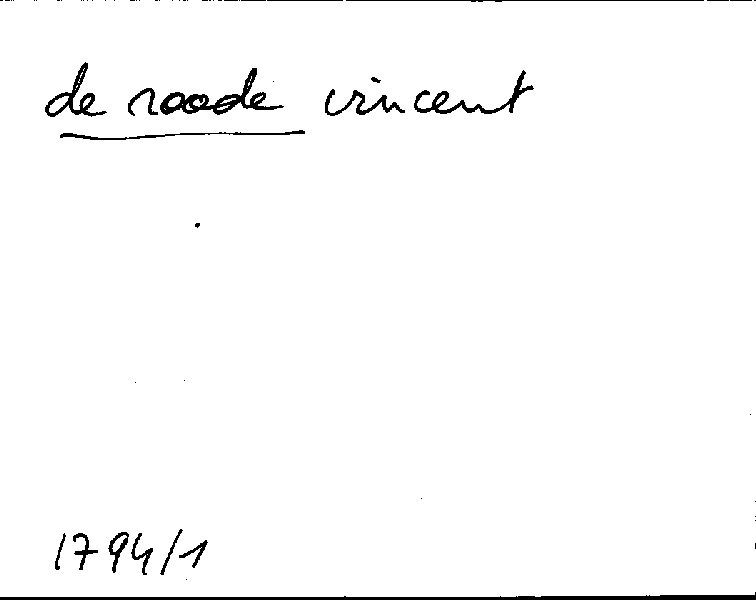 de roode vincent
1794/1